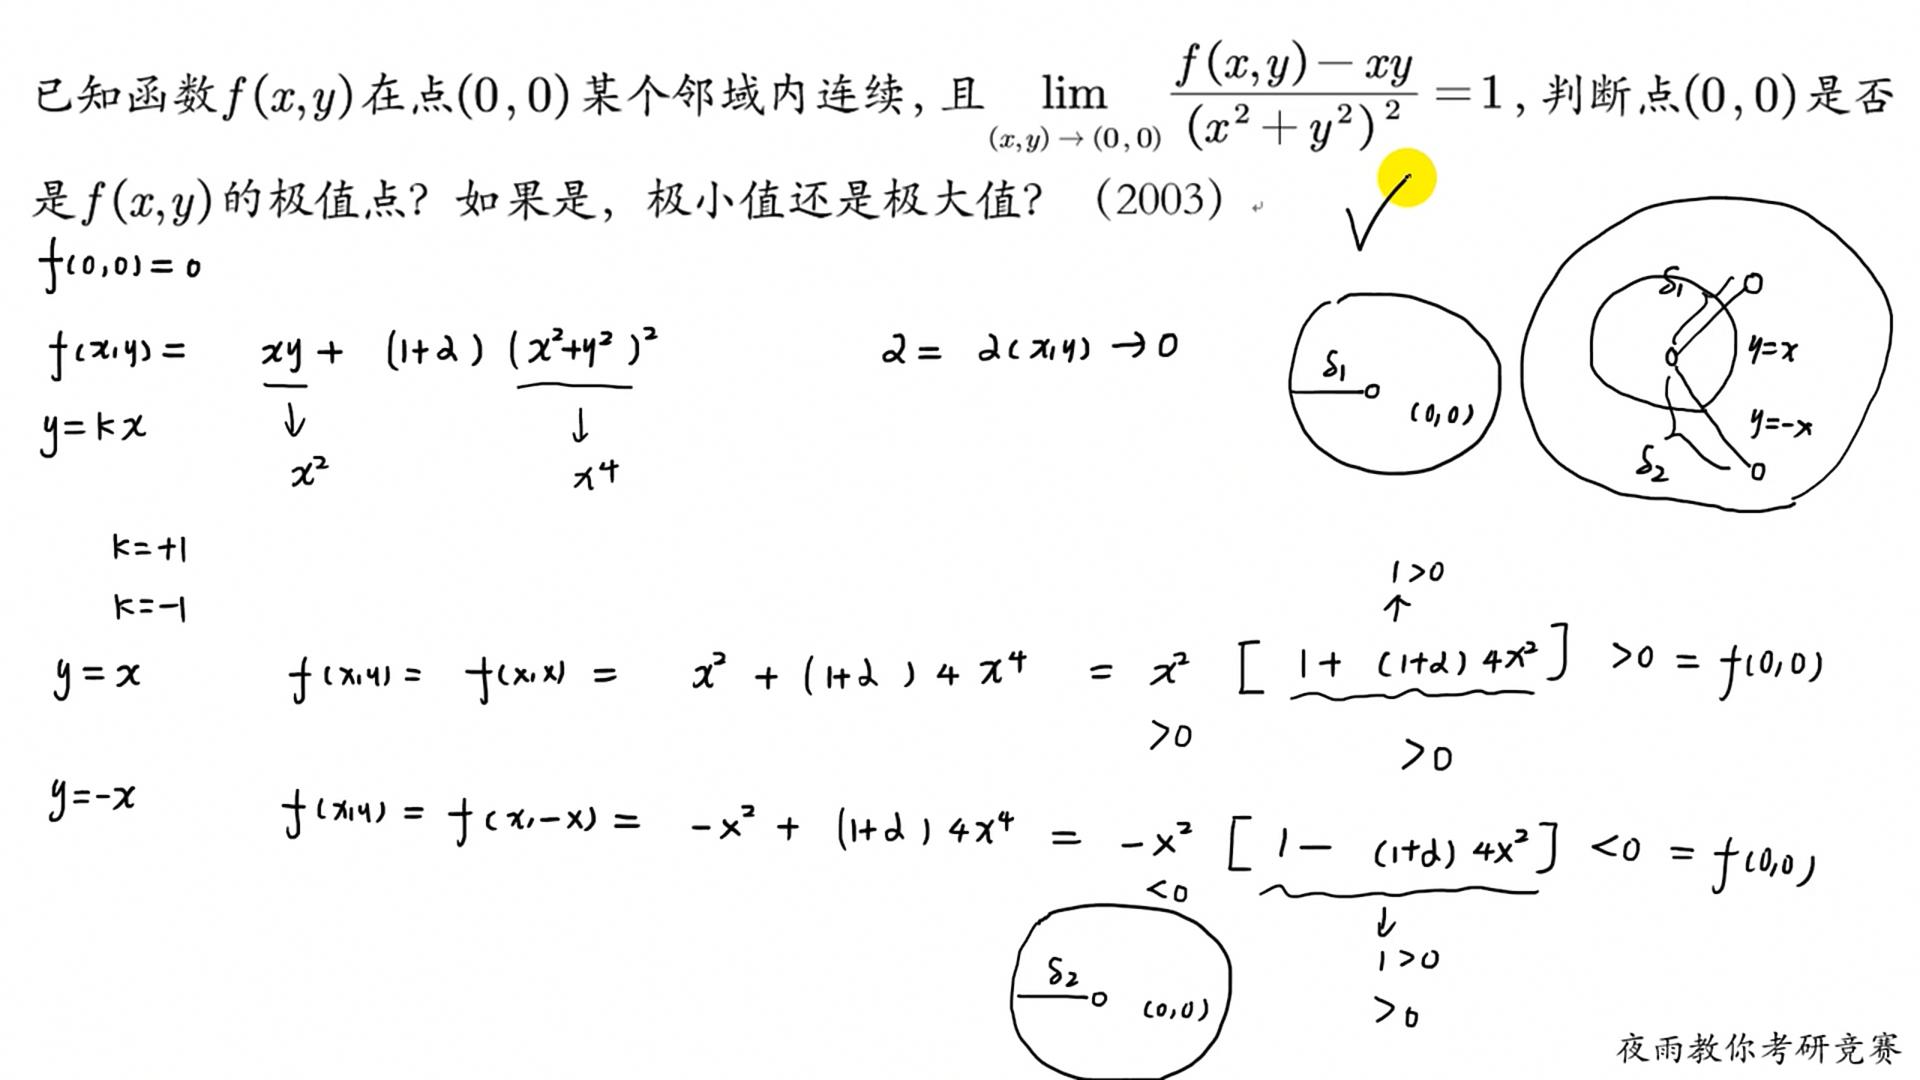 已知函数f(x,y)在点(0,0)某个邻域内连续,且 lim_{(x,y)→(0,0)} \frac{f(x,y)-xy}{(x²+y²)²}=1,判断点(0,0)是否
是f(x,y)的极值点?如果是,极小值还是极大值?(2003)
f(0,0)=0
f(x,y)= xy+ (1+α)(x²+y²)² α= α(x,y)→0
y=kx ↓ ↓
x² x⁴
δ₁ (0,0)
δ₁
y=x
y=-x
δ₂
k=+1
k=-1
1>0
↑
y=x f(x,y)= f(x,x)= x²+(1+α)4x⁴ = x²[1+(1+α)4x²]>0=f(0,0)
>0 >0
y=-x f(x,y)=f(x,-x)= -x²+(1+α)4x⁴ = -x²[1-(1+α)4x²]<0=f(0,0)
<0 ↓
1>0
>0
δ₂ (0,0)
夜雨教你考研竞赛